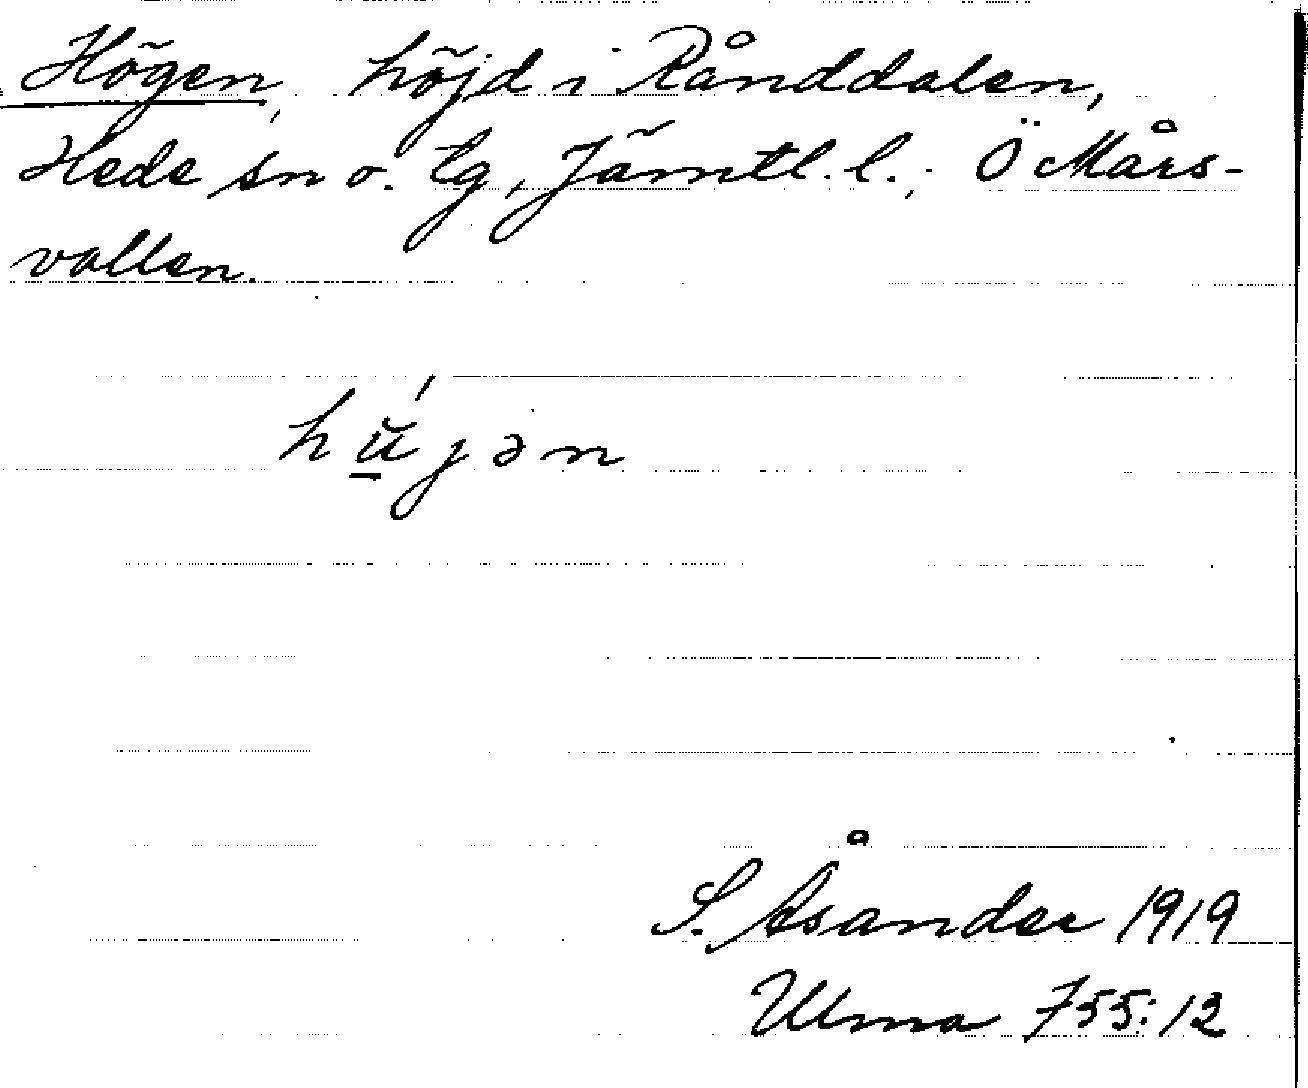 Högen, höjd i Rånddalen,
Hede sn o. tg, Jämtl. l.; Ö Mårs-
vallen.
hŭ̲́jən
S. Åsander 1919
Ulma 755:12